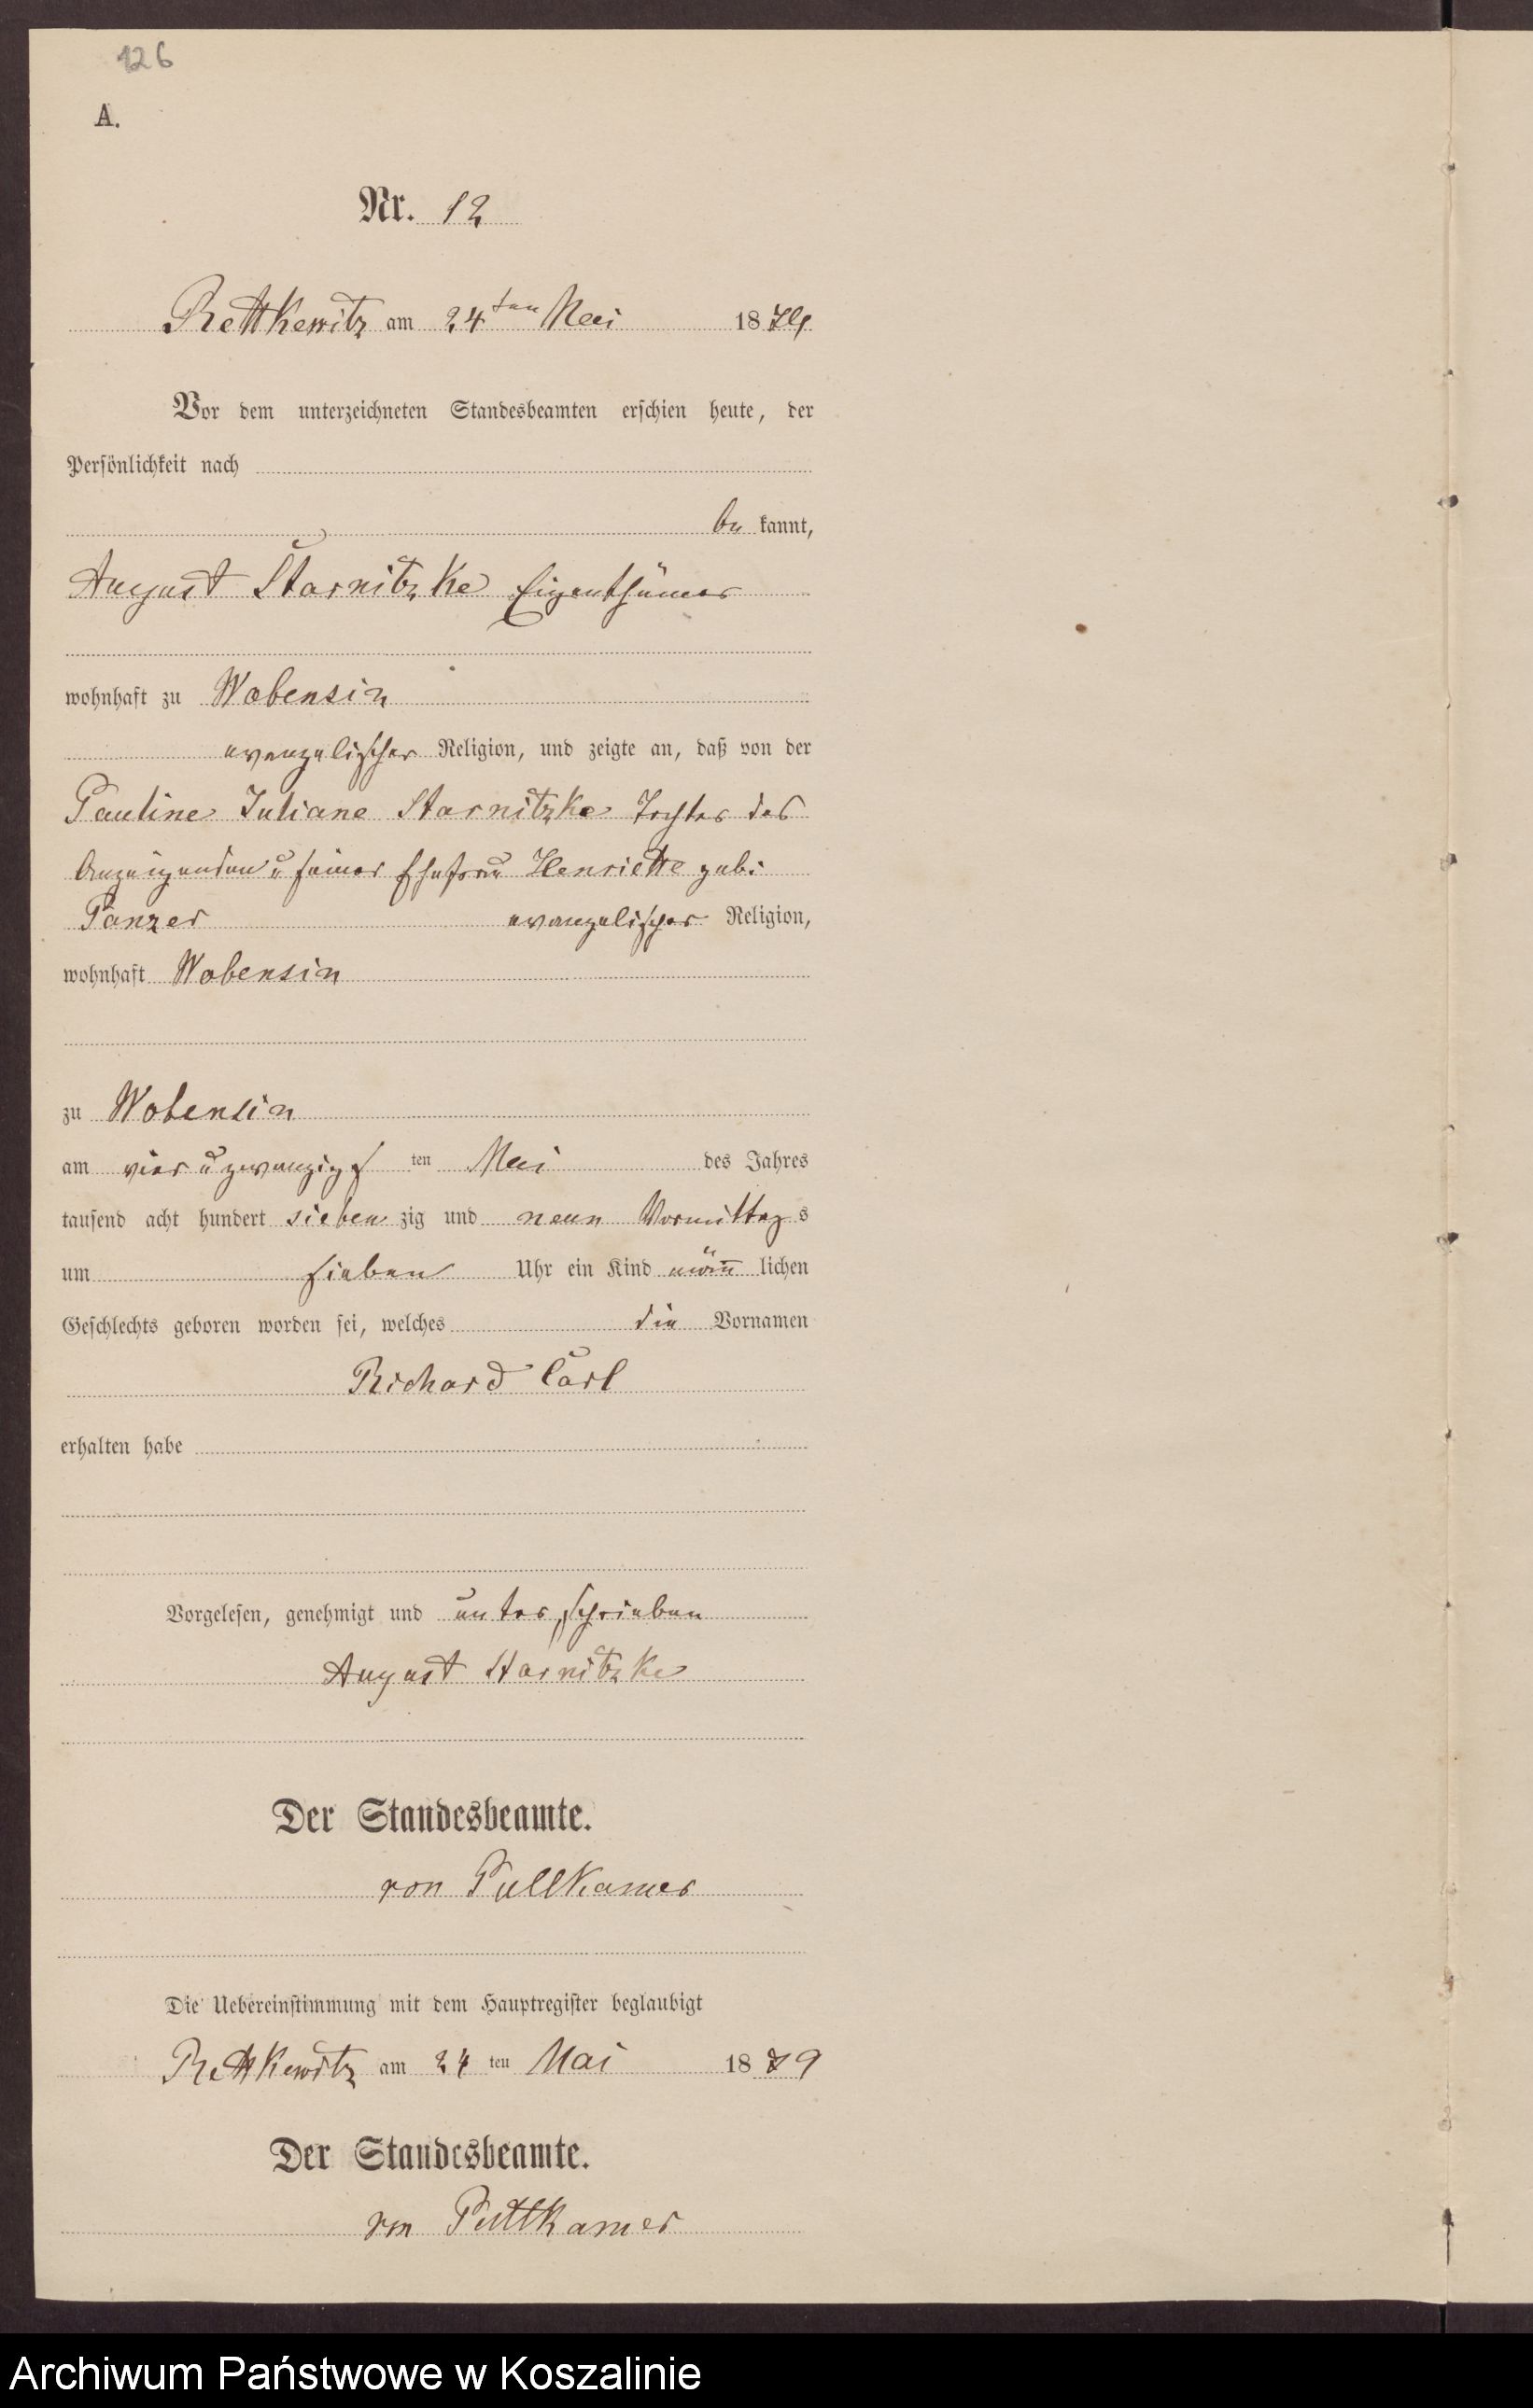 126
A.
Nr. 12
Rettkewitz am 24ten Mai 1879
Vor dem unterzeichneten Standesbeamten erschien heute, der
Persönlichkeit nach
be kannt,
August Starnitzke Eigenthümer
wohnhaft zu Wobensin
evangelischer Religion, und zeigte an, daß von der
Pauline Juliane Starnitzke Tochter des
Anzeigenden u seiner Ehefrau Henriette geb:
Panzer evangelischer Religion,
wohnhaft Wobensin
zu Wobensin
am vier u zwanzigs ten Mai des Jahres
tausend acht hundert sieben zig und neun Vormittag s
um sieben Uhr ein Kind männ lichen
Geschlechts geboren worden sei, welches die Vornamen
Richard Carl
erhalten habe
Vorgelesen, genehmigt und unterschrieben
August Starnitzke
Der Standesbeamte.
von Puttkamer
Die Uebereinstimmung mit dem Hauptregister beglaubigt
Rettkewitz am 24 ten Mai 1879
Der Standesbeamte.
von Puttkamer
Archiwum Państwowe w Koszalinie